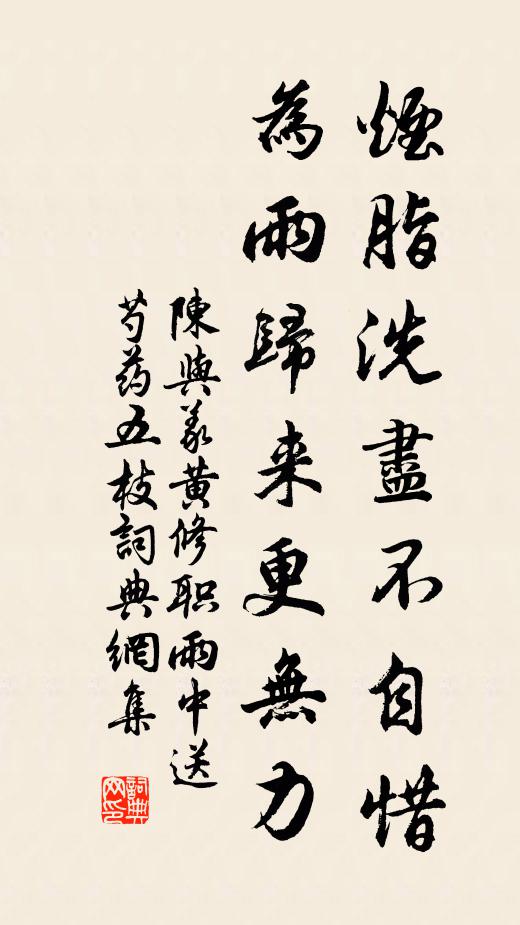 煙脂洗盡不自惜
為雨歸来更無力
陳與義黄修职雨中送
芍药五枝詞典網集
詞典网印